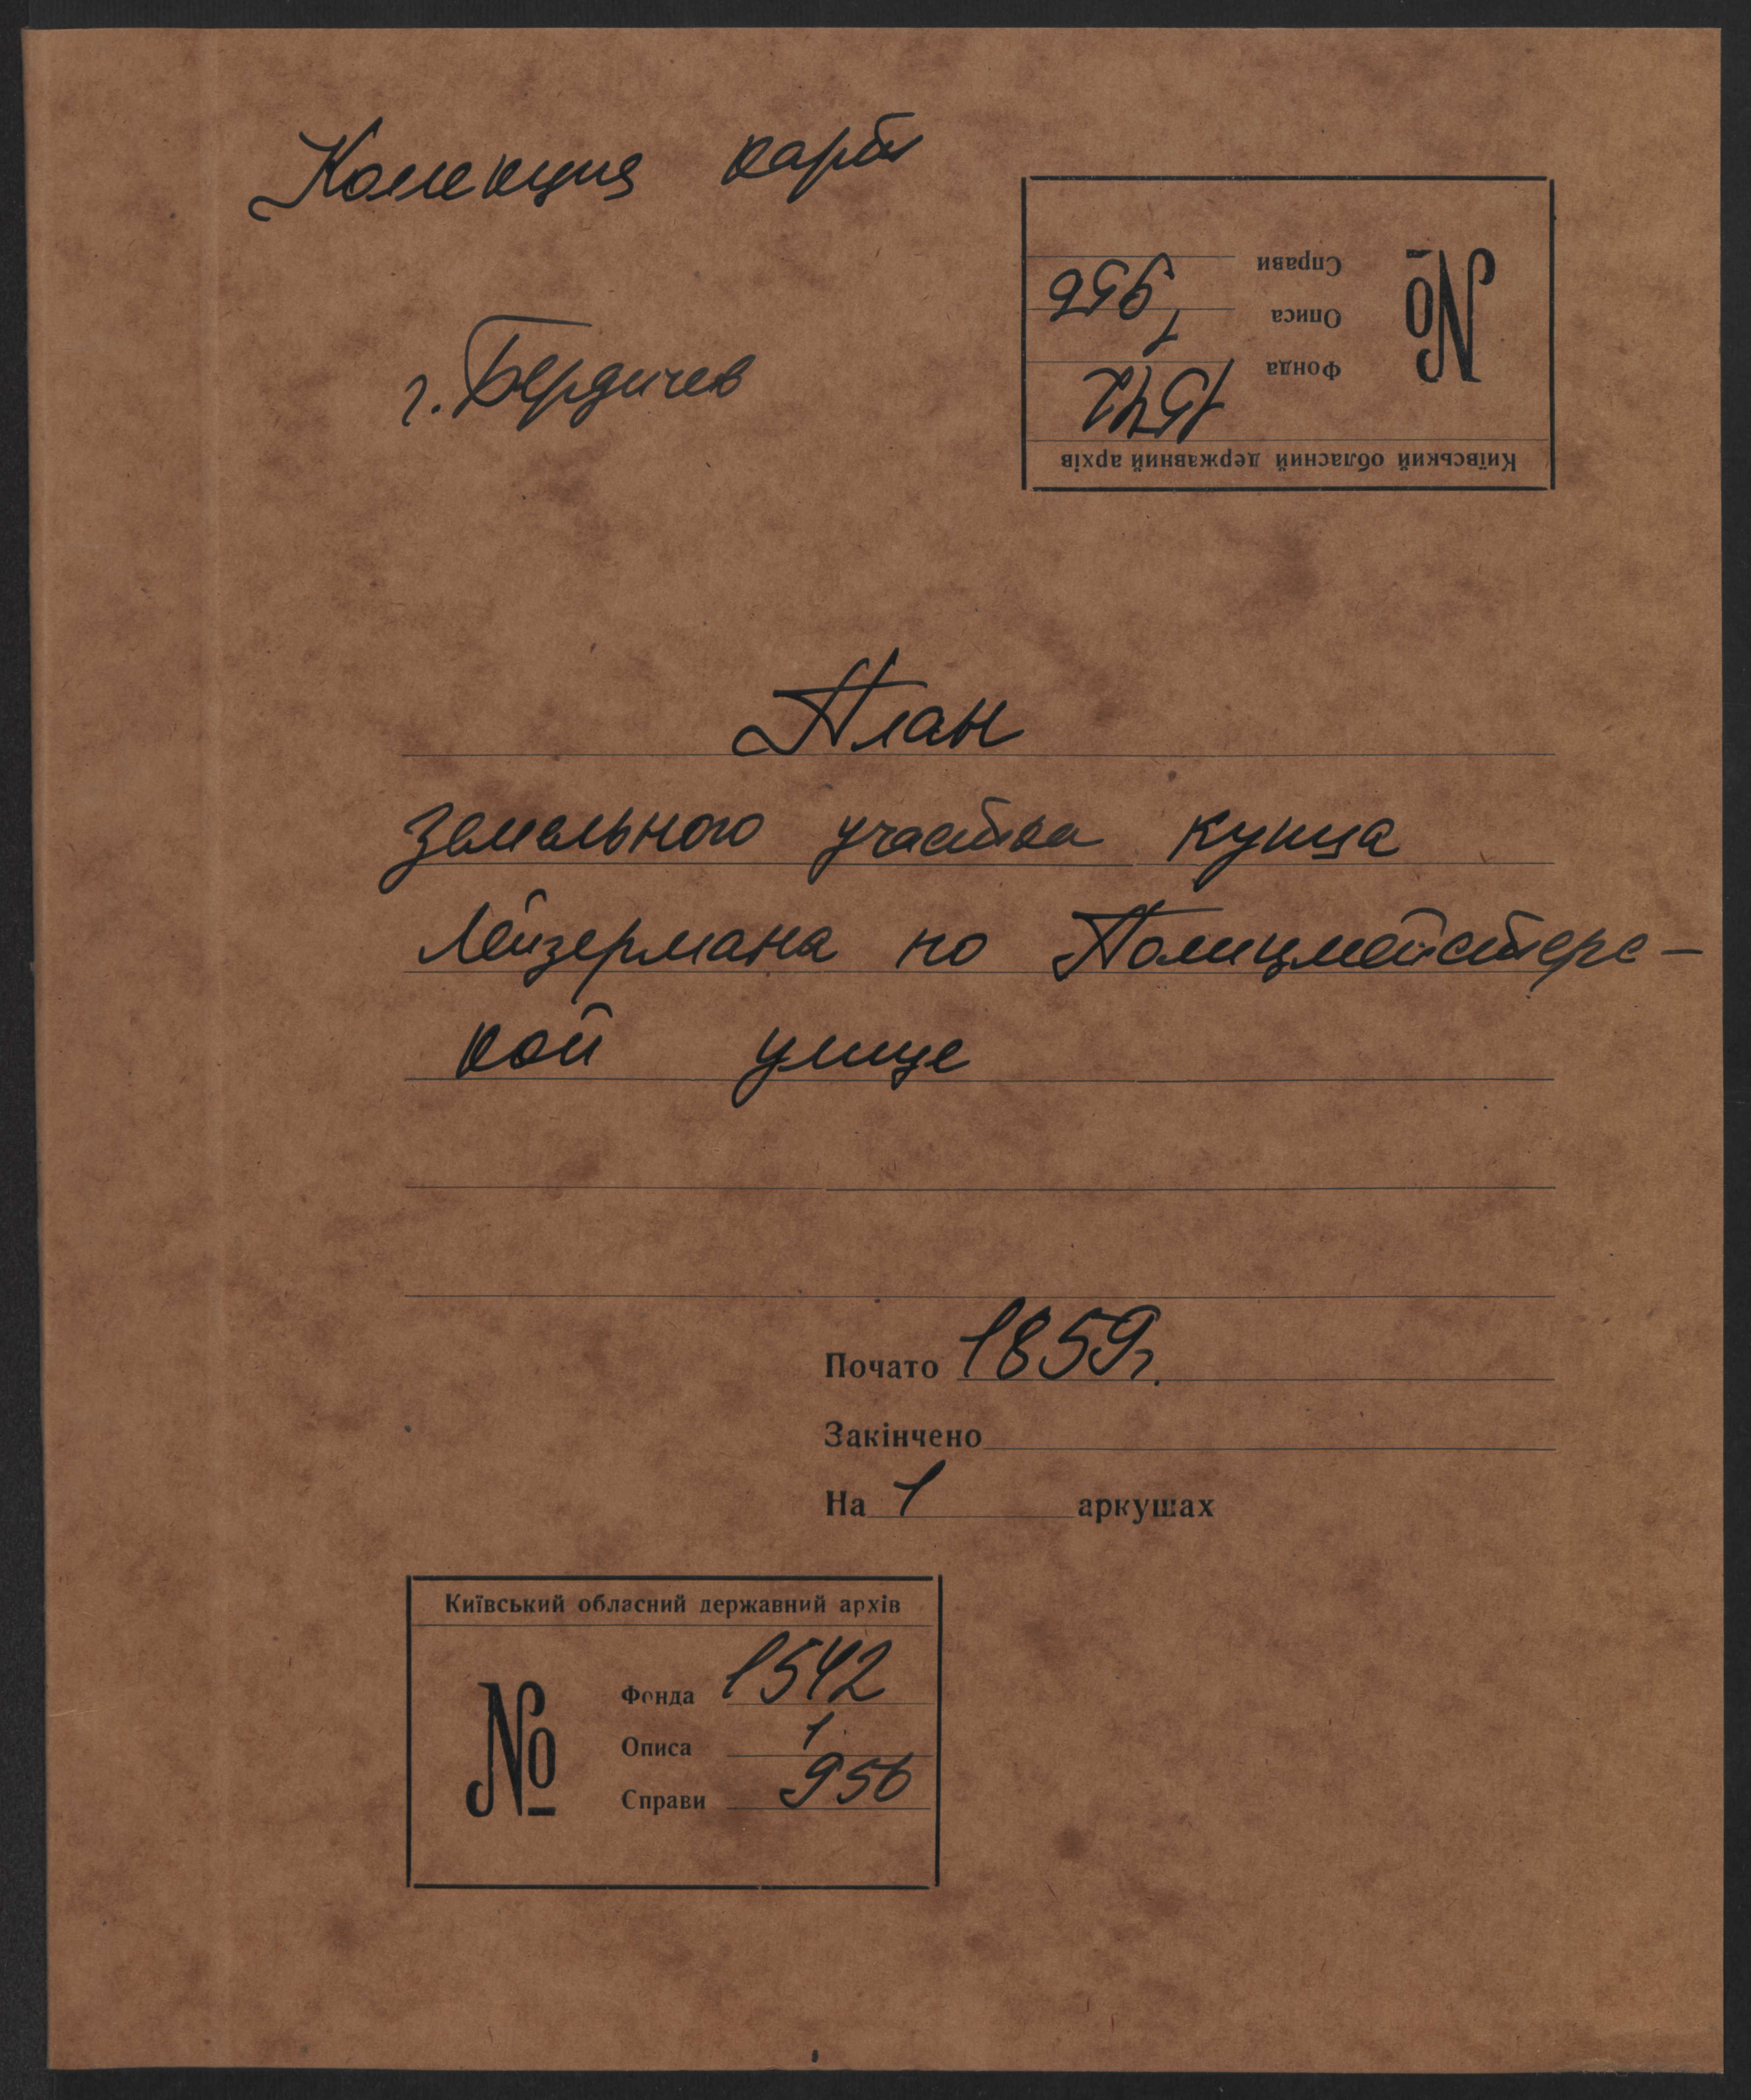 Колекция карт
г. Бердичев
Київський обласний державний архів
№
Фонда 1542
Описа 1
Справи 956
План
земельного участка купца
Лейзермана по Полицмейстерс-
кой улице
Почато 1859г.
Закінчено
На 1 аркушах
Київський обласний державний архів
№
Фонда 1542
Описа 1
Справи 956